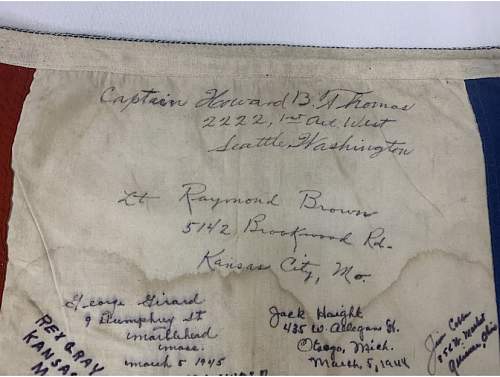 Captain Howard B. Thomas
2222, 1st Ave West
Seattle, Washington
Lt Raymond Brown
5142 Brookwood Rd.
Kansas City, Mo.
George Girard
9 Humphrey St
Marblehead
Mass.
March 5, 1945
Jack Haight
435 W. Allegan St.
Otsego, Mich.
March, 5, 1944
REX GRAY
KANSAS
M
Jim
W. Market
Ohio